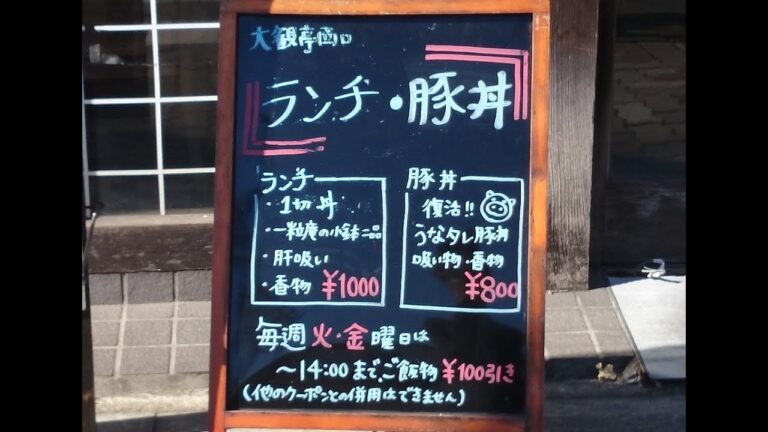 大観亭西口
ランチ・豚丼
ランチ
・1切丼
・一粒庵の小鉢二品
・肝吸い
・香物 ¥1000
豚丼
復活!!
うなタレ豚丼
吸い物・香物
¥800
毎週火・金曜日は
〜14:00までご飯物¥100引き
(他のクーポンとの併用はできません)